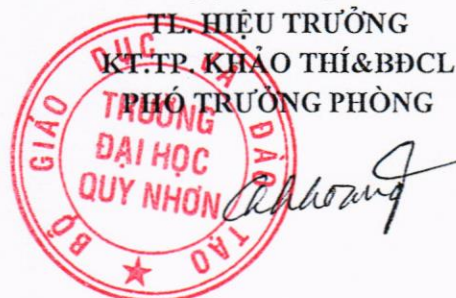 TL. HIỆU TRƯỞNG
KT.TP. KHẢO THÍ&BĐCL
PHÓ TRƯỞNG PHÒNG
BỘ GIÁO DỤC VÀ ĐÀO TẠO
TRƯỜNG
ĐẠI HỌC
QUY NHƠN